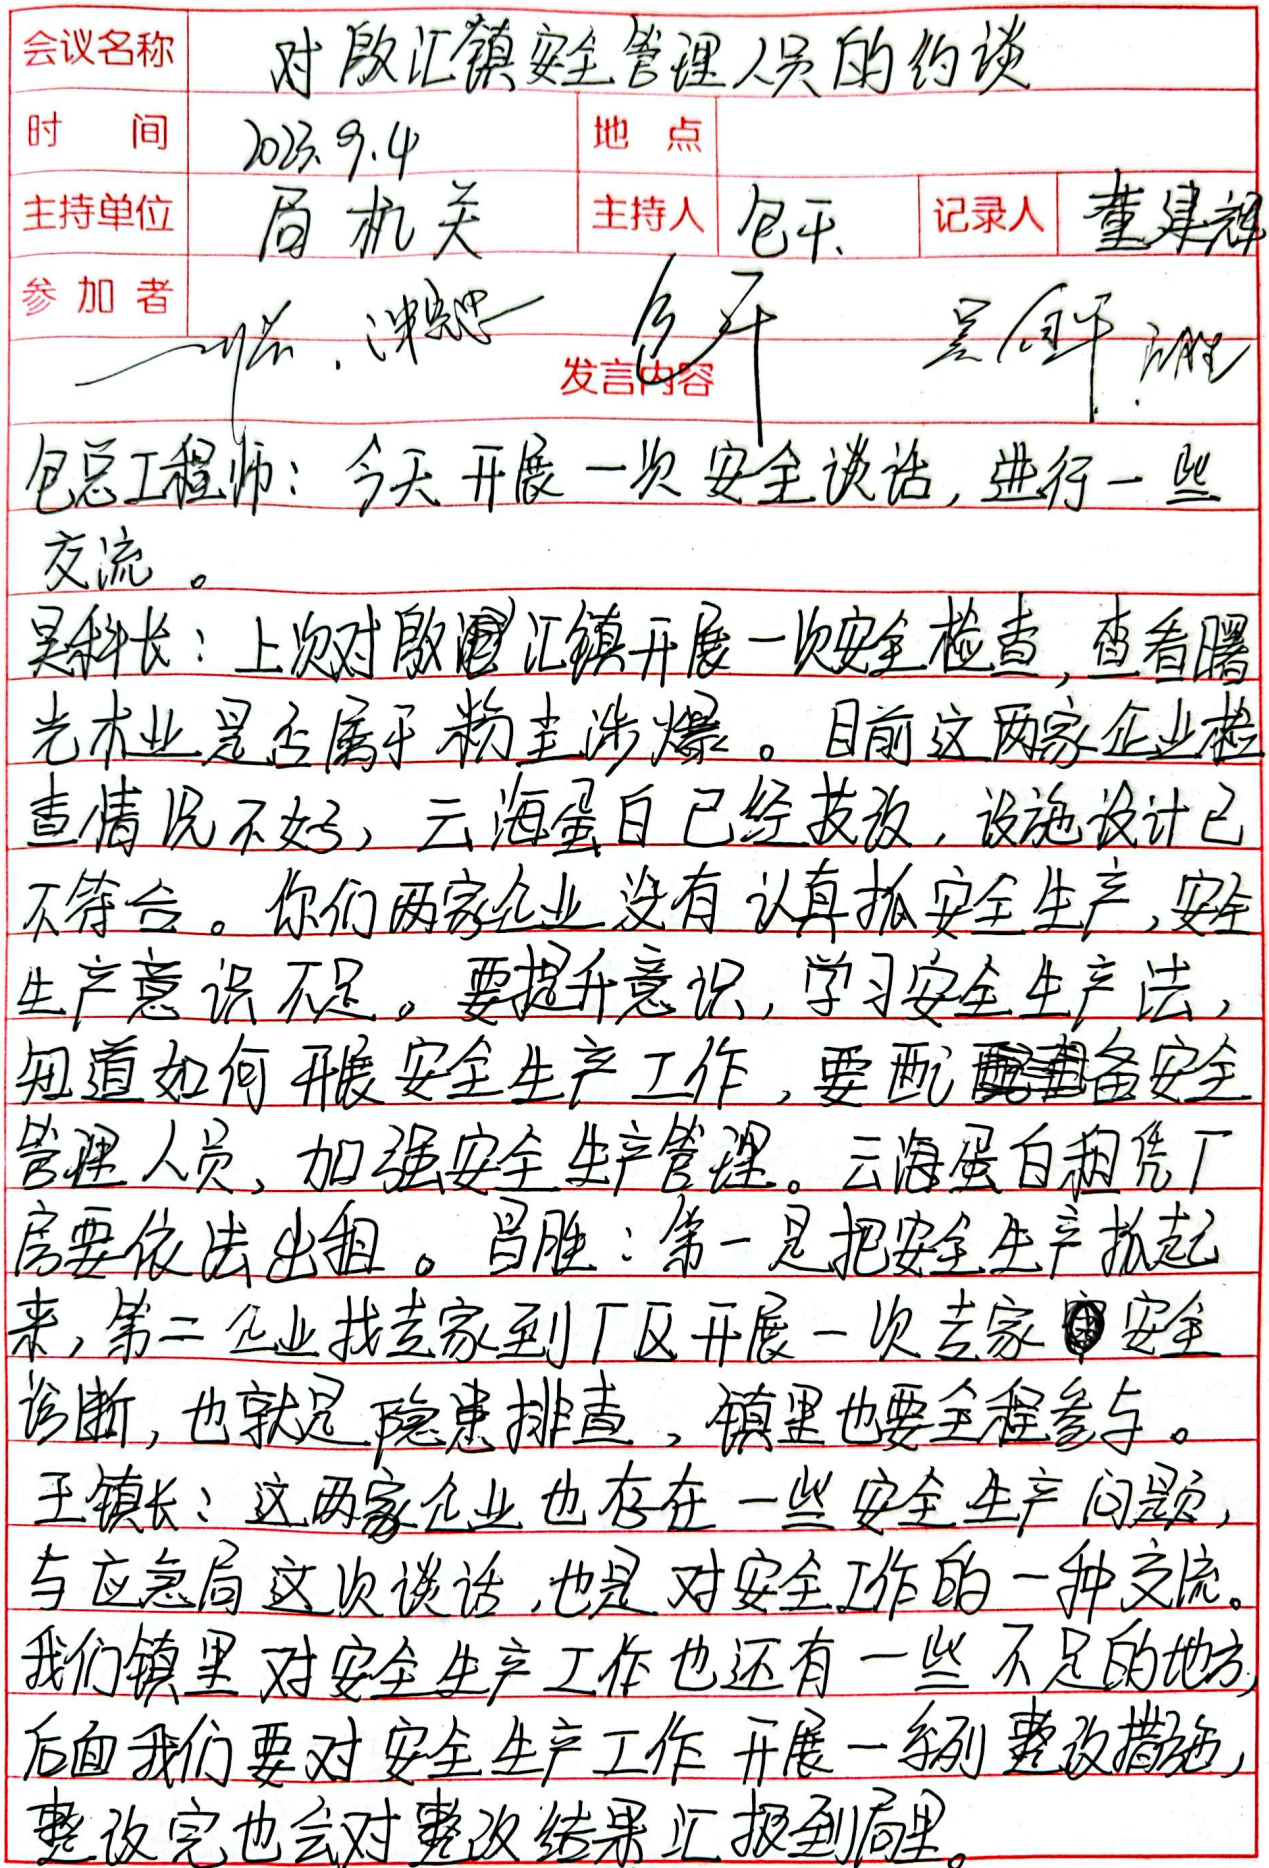 会议名称 对殷汇镇安全管理人员的约谈
时 间 2023.9.4 地 点
主持单位 局机关 主持人 包平 记录人 董建辉
参加者
吴金平
发言内容
包总工程师：今天开展一次安全谈话，进行一些
交流。
吴科长：上次对殷汇镇开展一次安全检查，查看曙
光木业是否属于粉尘涉爆。目前这两家企业检
查情况不好，云海蛋白已经技改，设施设计已
不符合。你们两家企业没有认真抓安全生产，安全
生产意识不足。要提升意识，学习安全生产法，
知道如何开展安全生产工作，要配备安全
管理人员，加强安全生产管理。云海蛋白租凭厂
房要依法出租。昌胜：第一是把安全生产抓起
来，第二企业找专家到厂区开展一次专家安全
诊断，也就是隐患排查，镇里也要全程参与。
王镇长：这两家企业也存在一些安全生产问题，
与应急局这次谈话，也是对安全工作的一种交流。
我们镇里对安全生产工作也还有一些不足的地方，
后面我们要对安全生产工作开展一系列整改措施，
整改完也会对整改结果汇报到局里。